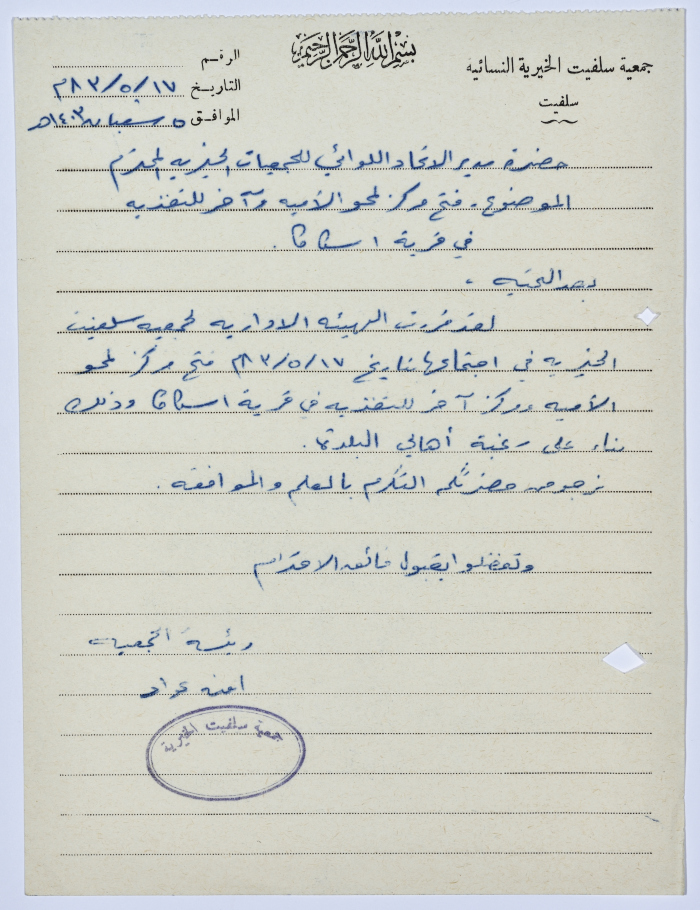 بسم الله الرحمن الرحيم
جمعية سلفيت الخيرية النسائيه
سلفيت
الرقم
التاريخ ١٧/٥/٨٣م
الموافق ٥ شعبان ١٤٠٣هـ
حضرة مدير الاتحاد اللوائي للجمعيات الخيريه المحترم
الموضوع. فتح مركز لمحو الأميه وآخر للتغذيه
في قرية اسكاكا.
بعد التحيه ،
لقد قررت الهيئه الاداريه لجمعيه سلفيت
الخيريه في اجتماعها بتاريخ ١٧/٥/٨٣م فتح مركز لمحو
الأميه ومركز آخر للتغذيه في قرية اسكاكا وذلك
بناء على رغبة أهالي البلدة.
نرجو من حضرتكم التكرم بالعلم والموافقه.
وتفضلوا بقبول فائق الاحترام
رئيسة الجمعيه
جمعية سلفيت الخيرية